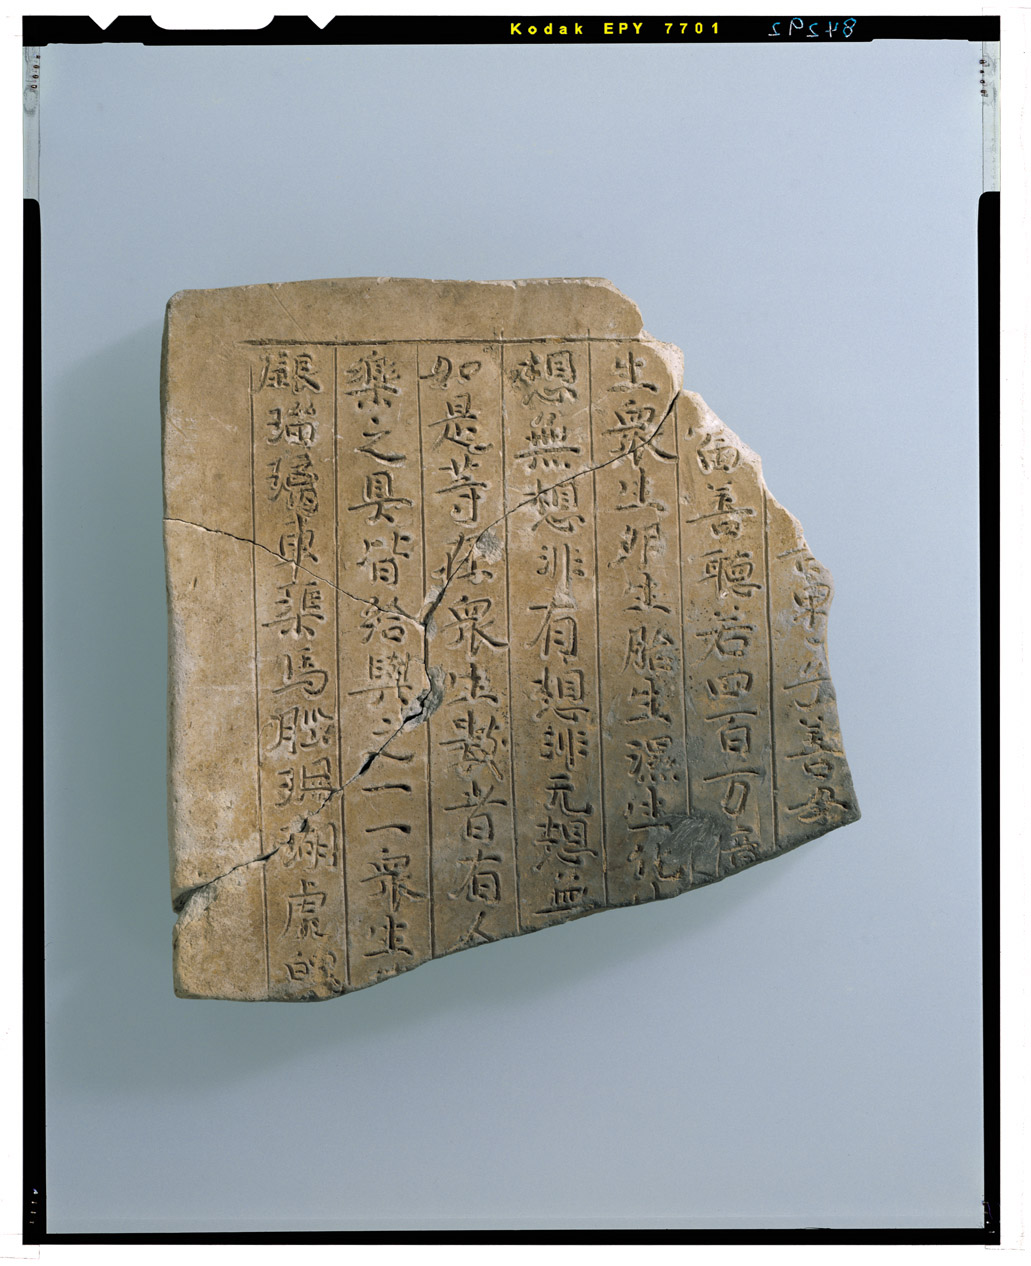 Kodak EPY 7701
84292
子善女
當善聽若四百万
生衆生卵生胎生濕生化
想無想非有想非无想無
如是等在衆生數者有人
樂之具皆給與之一一衆生
銀瑠璃車渠馬腦珊瑚虎珀